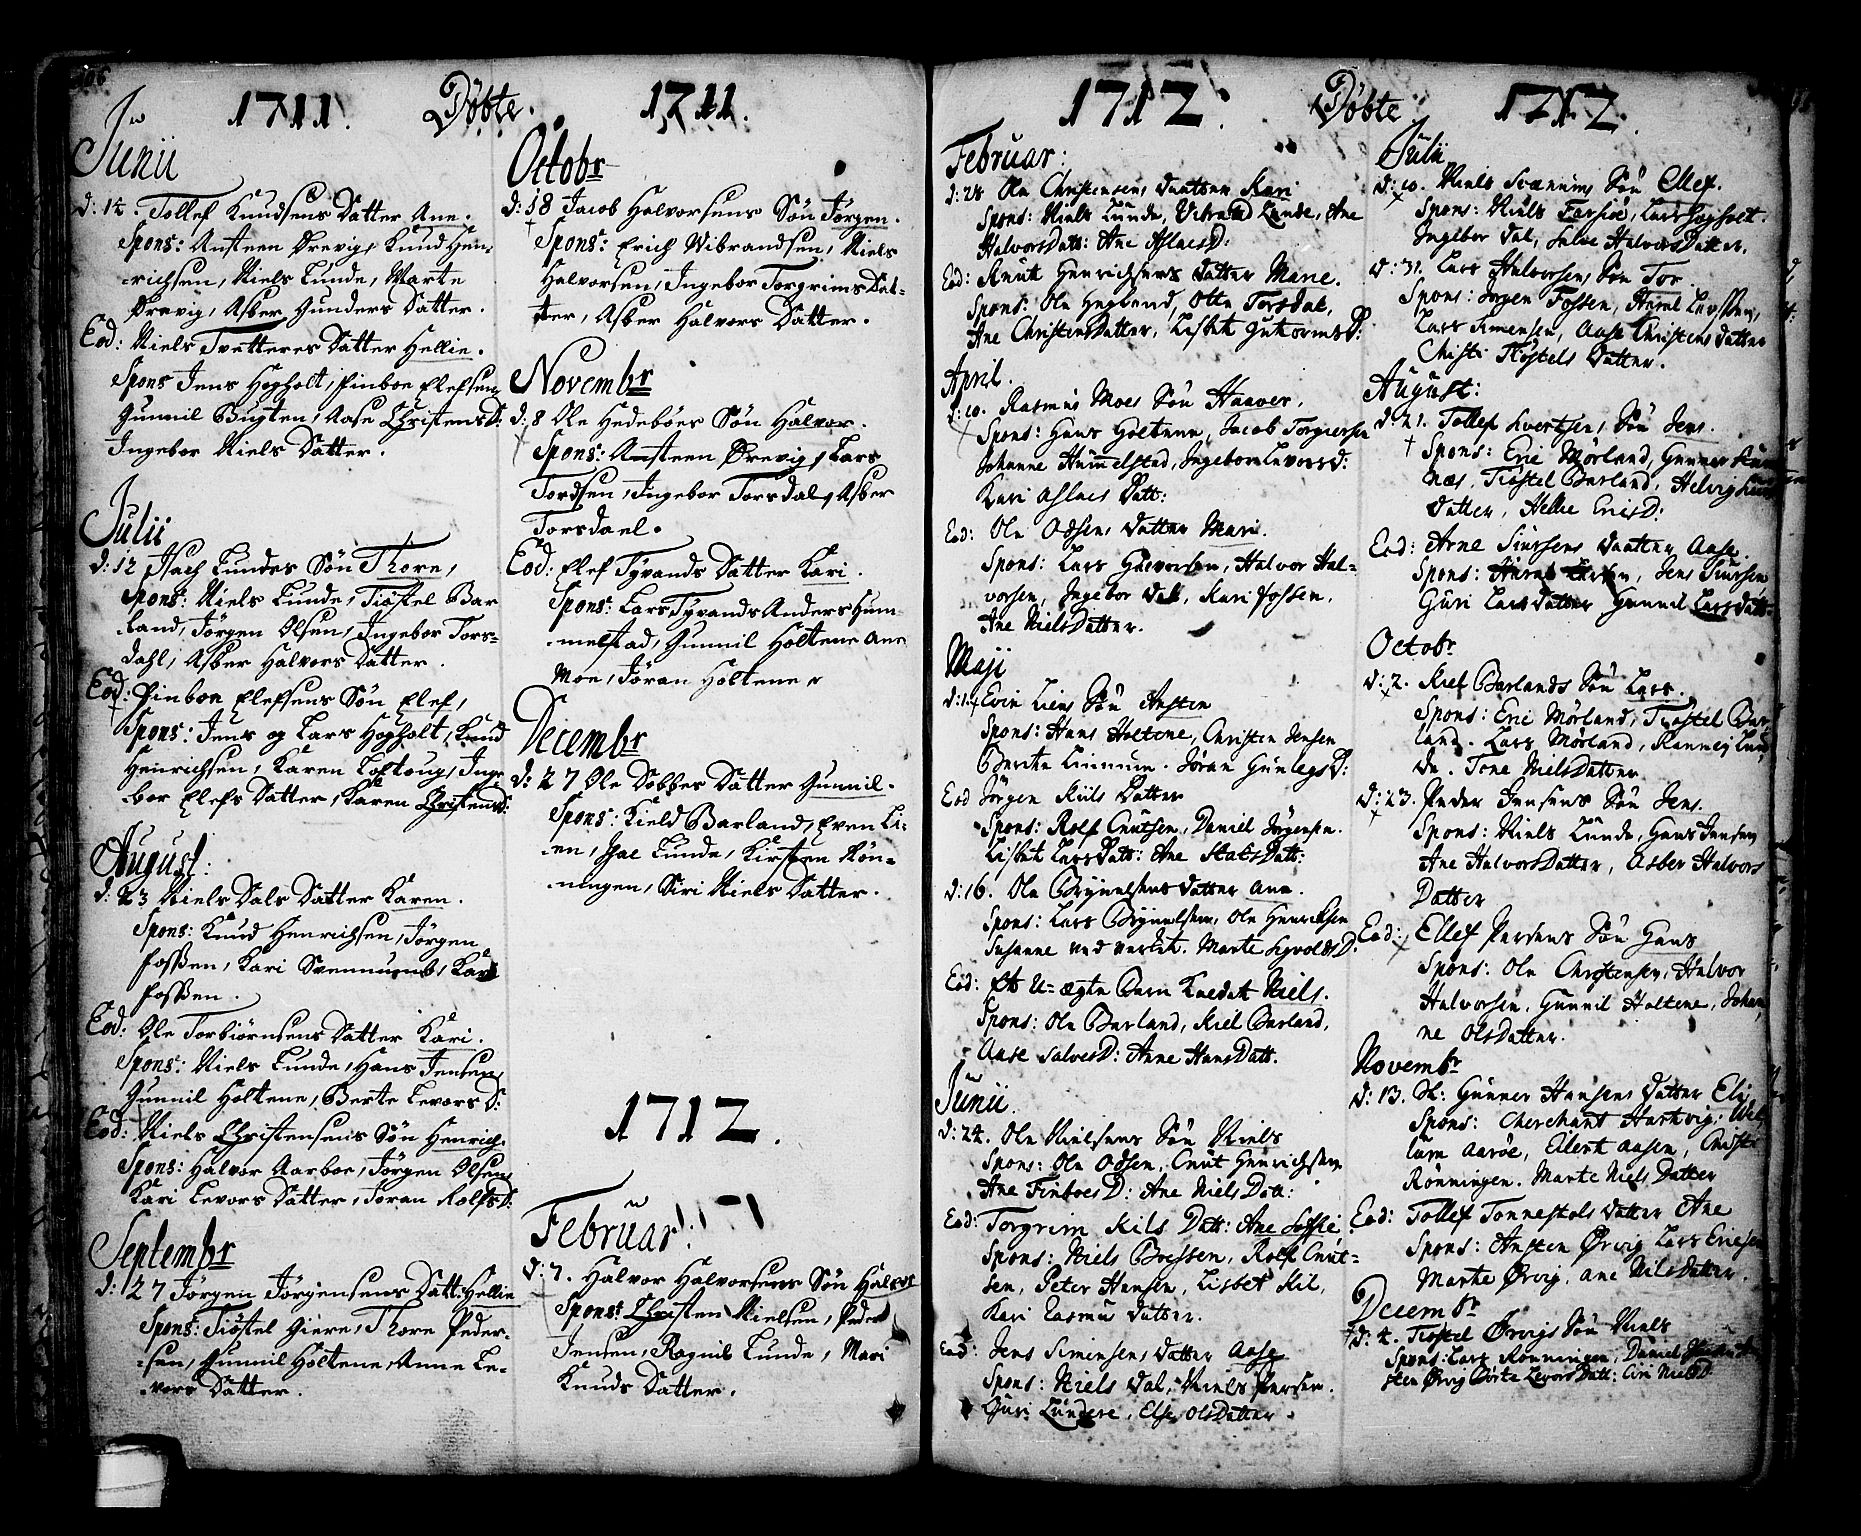 106
1711. Døbte. 1711.
Junii
d: 14. Tollef Knudsens Datter Ane.
Spons: Ansteen Ørevig, Knud Hen-
richsen, Niels Lunde, Marte
Ørevig, Asber Gunders Datter.
Eod: Niels Tvetteres Datter Hellie.
Spons Jens Hogholt, Finboe Elefsen,
Gunnil Bugten, Aase Christens D:
Ingebor Niels Datter.
Julii
d: 12 Isach Lundes Søn Thore,
Spons: Niels Lunde, Tiøstel Bar
land, Jørgen Olsen, Ingebor Tors-
dahl, Asber Halvors Datter.
Eod: Finboe Elefsens Søn Elef,
Spons: Jens og Lars Hogholt, Knud
Henrichsen, Karen Loftoug, Inge
bor Elefs Datter, Karen Christens D:
August:
d: 23 Niels Dals Datter Karen.
Spons: Knud Henrichsen, Jørgen
Fossen, Kari
Fossen.
Eod: Ole Torbiørnsens Datter Kari.
Spons: Niels Lunde, Hans Jensen,
Gunnil Holtene, Berte Levors D:
Eod: Niels Christensens Søn Henrich.
Spons: Halvor Aarboe, Jørgen Olsen,
Kari Levors Datter, Joran Rolfs D:
Septembr
d: 27 Jørgen Jørgensens Datt: Hellie
Spons: Tiøstel Giere, Thore Peder-
sen, Gunnil Holtene, Anne Le-
vors Datter.
Octobr
d: 18 Jacob Halvorsens Søn Jørgen.
Spons: Erich Wibrandsen, Niels
Halvorsen, Ingebor Torgrims Dat-
ter, Asber Halvors Datter.
Novembr
d: 8 Ole Hedebøes Søn Halvor.
Spons: Ansteen Ørevig, Lars
Tordsen, Ingebor Torsdal, Asber
Torsdael.
Eod: Elef Tyvands Datter Kari.
Spons: Lars Tyvands Anders Hum-
melstad, Gunnil Holtene Ane
Moe, Jøran Holtene
Decembr
d: 27 Ole Dobbes Datter Gunnil.
Spons: Kield Barland, Even Li-
en, Isac Lunde, Kirsten Røn-
ningen, Siri Niels Datter.
1712.
Februar:
d: 7. Halvor Halvorsens Søn Halvor
Spons: Christen Nielsen, Peder
Jensen, Ragnil Lunde, Mari
Knuds Datter.
1712. Døbte 1712.
Februar:
d: 28 Ole Christensens Daatter Kari
Spons: Niels Lunde, Vibrand Lunde, Ane
Halvors Datt: Ane Aslacs D:
Eod: Knut Henrichsens Datter Marie.
Spons: Ole Heglund, Otte Torsdal,
Ane Christens Datter, Lisbet Gutorms D:
April.
d: 10. Rasmus Moes Søn Haaver.
Spons: Hans Holtene, Jacob Torgiersen
Johanne Hummelstad, Ingebor Levors D:
Kari Aslacs Datt:
Eod: Ole Odsens Datter Mari.
Spons: Lars Halvorsen, Halvor Hal=
vorsen, Ingebor Dal, Kari Fossen,
Ane Niels Datter.
Maji
d: 1. Evin Liens Søn Ansten
Spons: Hans Holtene, Christen Jensen
Berete Limmen. Joran Gunlegs D:
Eod Jørgen Kiils Datter
Spons: Rolf Cnutsen, Daniel Jørgensen.
Lisbet Lars Datt: Ane Stats Datt:
d: 16. Ole Brynelsens Datter Ane.
Spons: Lars Brynelsen, Ole Henrichsen
Susanne ved Marte Sigvolds D.
Eod: Et U=ægte Barn Kaldet Niels.
Spons: Ole Barland, Kiel Barland,
Aase Salves D: Anne Hans Datt.
Junii.
d: 24. Ole Nielsens Søn Niels
Spons: Ole Odsen, Cnut Henrichsen
Ane Finboes D: Ane Niels Datt:
Eod: Torgrim Kils Datt: Ane Soffie.
Spons: Niels Bressen, Rolf Cnut-
sen, Peter Hansen, Lisbet Kil,
Kari Rasmus Datter.
Eod: Jens Simensens Datter Aase
Spons: Niels Dal, Niels Persen.
Guri Lundere, Else Ols Datter.
Julii
d: 10. Niels Svennings Søn Ellef.
Spons: Niels Farsiøe, Lars Hogholt
Ingebor Dal, Salve Halvors Datter.
d: 31. Lars Halvorsens Søn Tor
Spons: Jørgen Fossen, Haral
Lars Simensen, Aase Christens Datter
Christi Tiøstels Datter.
August:
d: 21. Tollef Sivertsens Søn Jens.
Spons: Eric Mørland, Gunner
Næs, Tiøstel Barland, Helvig
Datter, Helle Erics D:
Eod: Arne Siursens Daatter Aase
Spons: Jens Siursen
Guri Lars Datter Gunnil Lars Datt:
Octobr
d: 2. Kiel Barlands Søn Lars.
Spons: Eric Mørland, Tiøstel Bar
land. Lars Mørland, Ranneig Lun
de. Tone Niels Datter
d: 23. Peder Jensens Søn Jens.
Spons: Niels Lunde, Hans Jensen
Ane Halvors Datter, Asber Halvors
Datter
Eod: Ellef Persens Søn Hans
Spons: Ole Christensen, Halvor
Halvorsen, Gunnil Holtene, Johan
ne Ols Datter.
Novembr
d: 13. Sr: Gunner Hansens Datter Eli
Spons: Cherchant Hartvig, Wil
lum Aarøe, Eilert Aasen, Christi
Rønningen. Marte Niels Datter
Eod: Tollef Tonnestols Datter Ane
Spons: Ansten Ørvig Lars Ericsen
Marte Ørvig, Ane Niels Datter.
Decembr
d: 4. Tiøstel Ørvigs Søn Niels
Spons: Lars Rønningen, Daniel An
sten Ørvig Børte Levors Datt: Siri Niels D